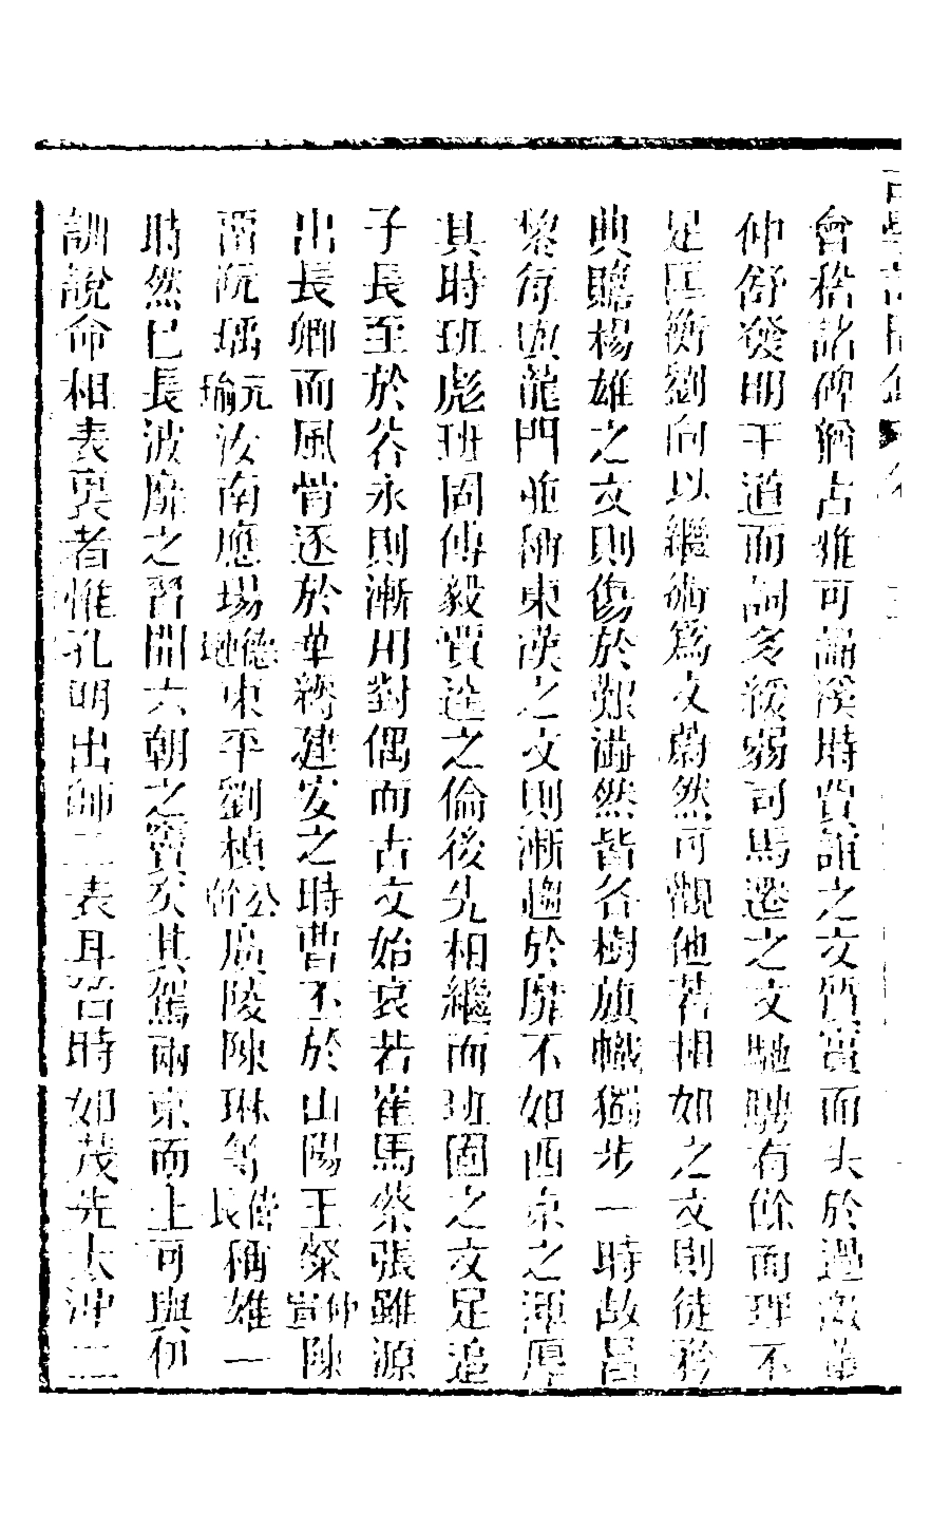 會稽諸碑猶古雅可誦漢時賈誼之文質實而失於過激董
仲舒發明王道而詞多緩弱司馬遷之文馳騁有餘而理不
足匡衡劉向以經術為文蔚然可觀他若相如之文則徒矜
典贍楊雄之文則傷於艱澁然皆各樹旗幟獨步一時故昌
黎每與龍門並稱東漢之文則漸趨於靡不如西京之渾厚
其時班彪班固傅毅賈逵之倫後先相繼而班固之文足追
子長至於谷永則漸用對偶而古文始衰若崔馬蔡張雖源
出長卿而風骨逐於華縟建安之時曹丕於山陽王粲仲宣陳
畱阮瑀元瑜汝南應瑒德璉東平劉楨公幹廣陵陳琳等偉長稱雄一
時然已長波靡之習開六朝之竇矣其駕兩京而上可與伊
訓說命相表裏者惟孔明出師二表耳晉時如茂先太沖二